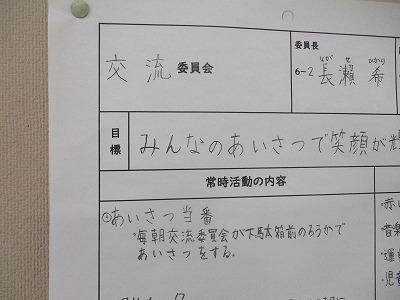 交流委員会
委員長
ながせ ひかり
6-2 長瀬 希
目標
みんなのあいさつで笑顔が
常時活動の内容
あいさつ当番
・毎朝交流委員会が下駄箱前のろうかで
あいさつをする。
・赤い
音楽
・運
・児童